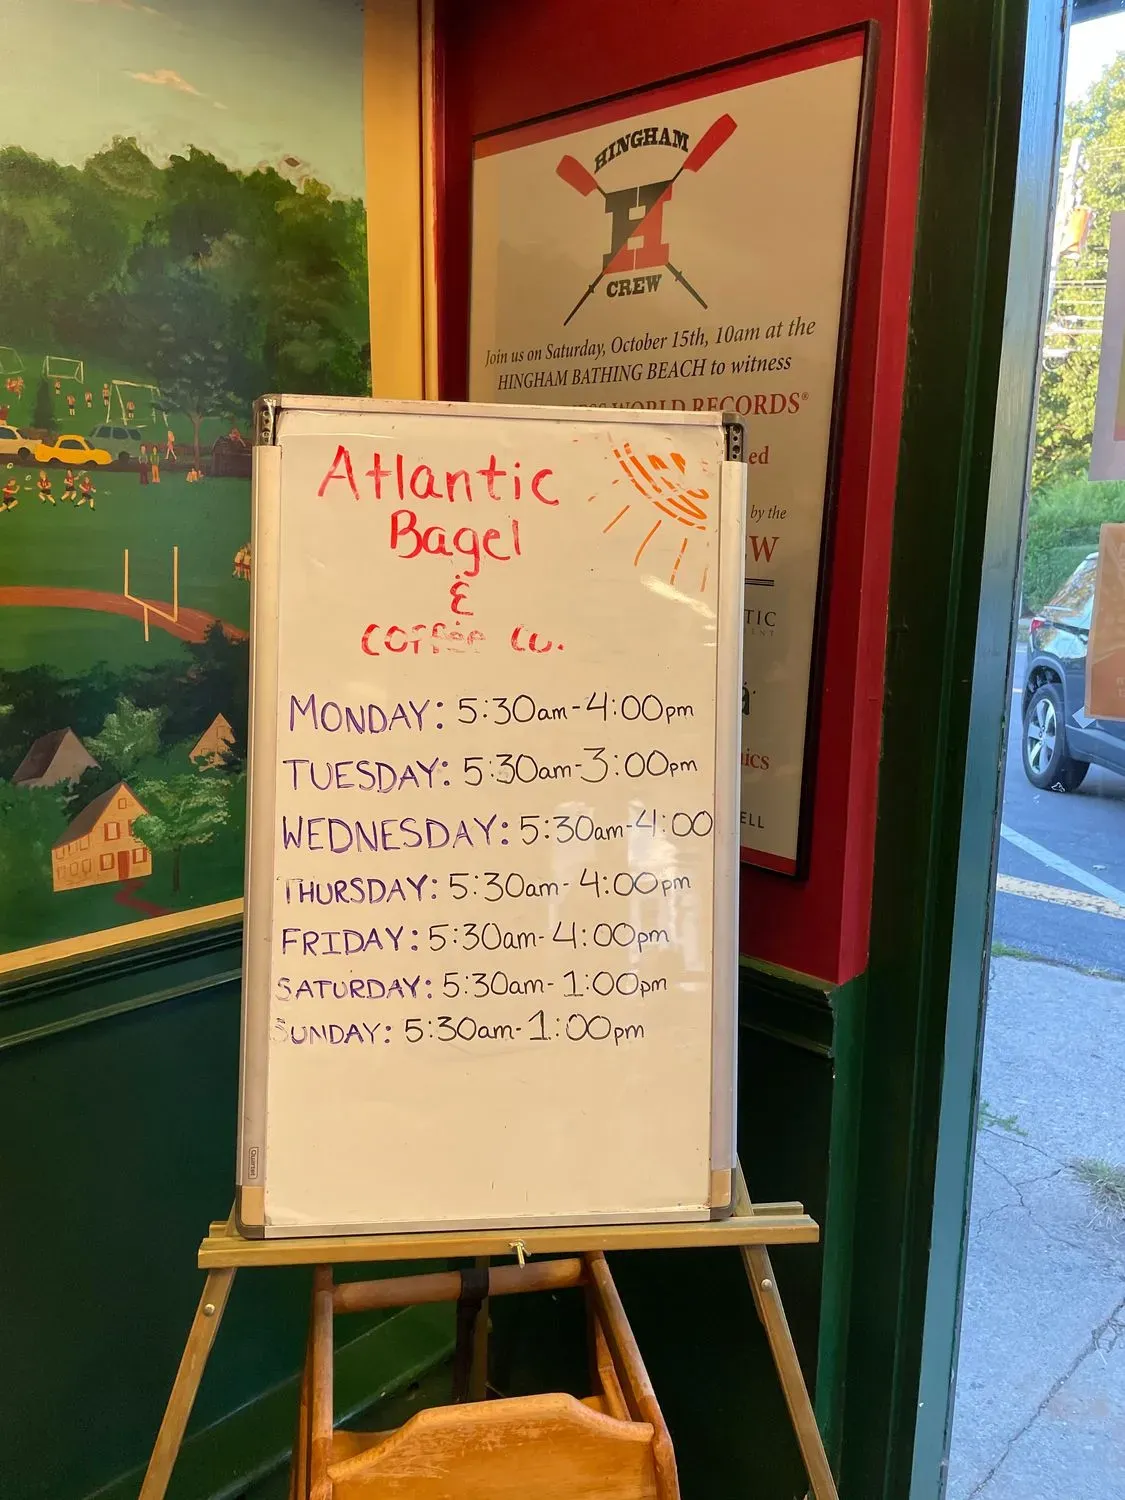 HINGHAM
H
CREW
Join us on Saturday, October 15th, 10am at the
HINGHAM BATHING BEACH to witness
WORLD RECORDS®
ed
by the
W
TIC
ENT
a
ics
ELL
Atlantic
Bagel
&
Coffee Co.
MONDAY: 5:30am-4:00pm
TUESDAY: 5:30am-3:00pm
WEDNESDAY: 5:30am-4:00
THURSDAY: 5:30am-4:00pm
FRIDAY: 5:30am-4:00pm
SATURDAY: 5:30am-1:00pm
SUNDAY: 5:30am-1:00pm
Quartet